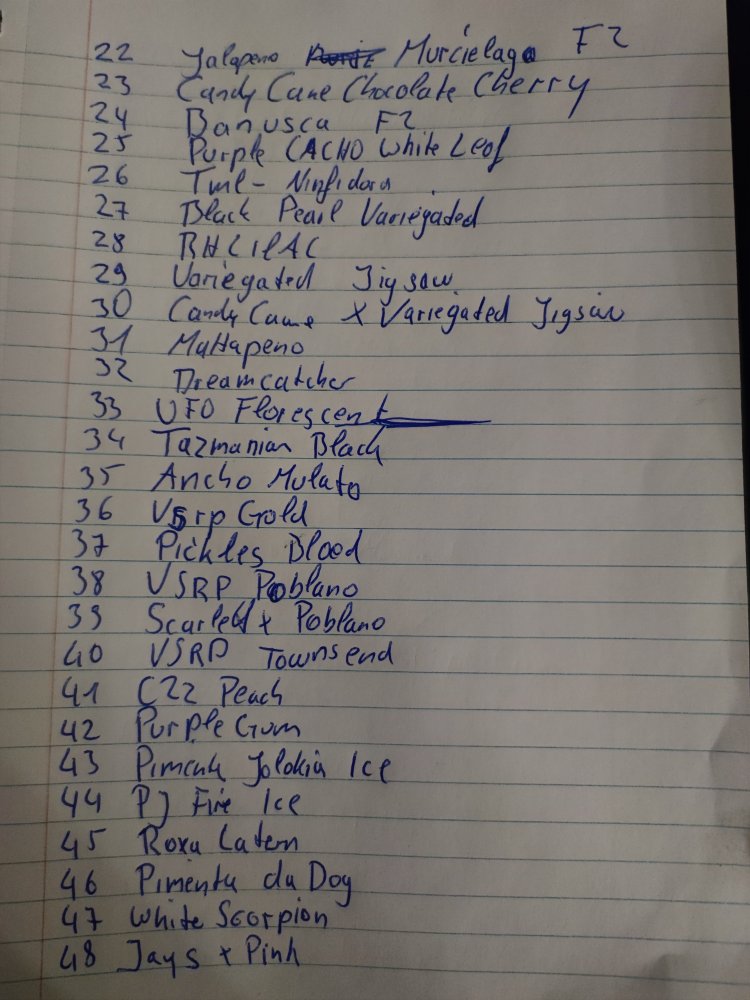 22 Jalapeno Murcielago F2
23 Candy Cane Chocolate Cherry
24 Banusca F2
25 Purple CACHO White Leof
26 Tml - Ninfidora
27 Black Pearl Variegated
28
29 Variegated Jigsaw
30 Candy Cane X Variegated Jigsaw
31 Mattapeno
32 Dreamcatcher
33 UFO Florescent
34 Tazmanian Black
35 Ancho Mulato
36 Vsrp Gold
37 Pickles Blood
38 VSRP Poblano
39 Scarlett x Poblano
40 VSRP Townsend
41 C22 Peach
42 Purple Gum
43 Pimenta Jolokia Ice
44 PJ Fire Ice
45 Roxa Latern
46 Pimenta da Dog
47 White Scorpion
48 Jays x Pink